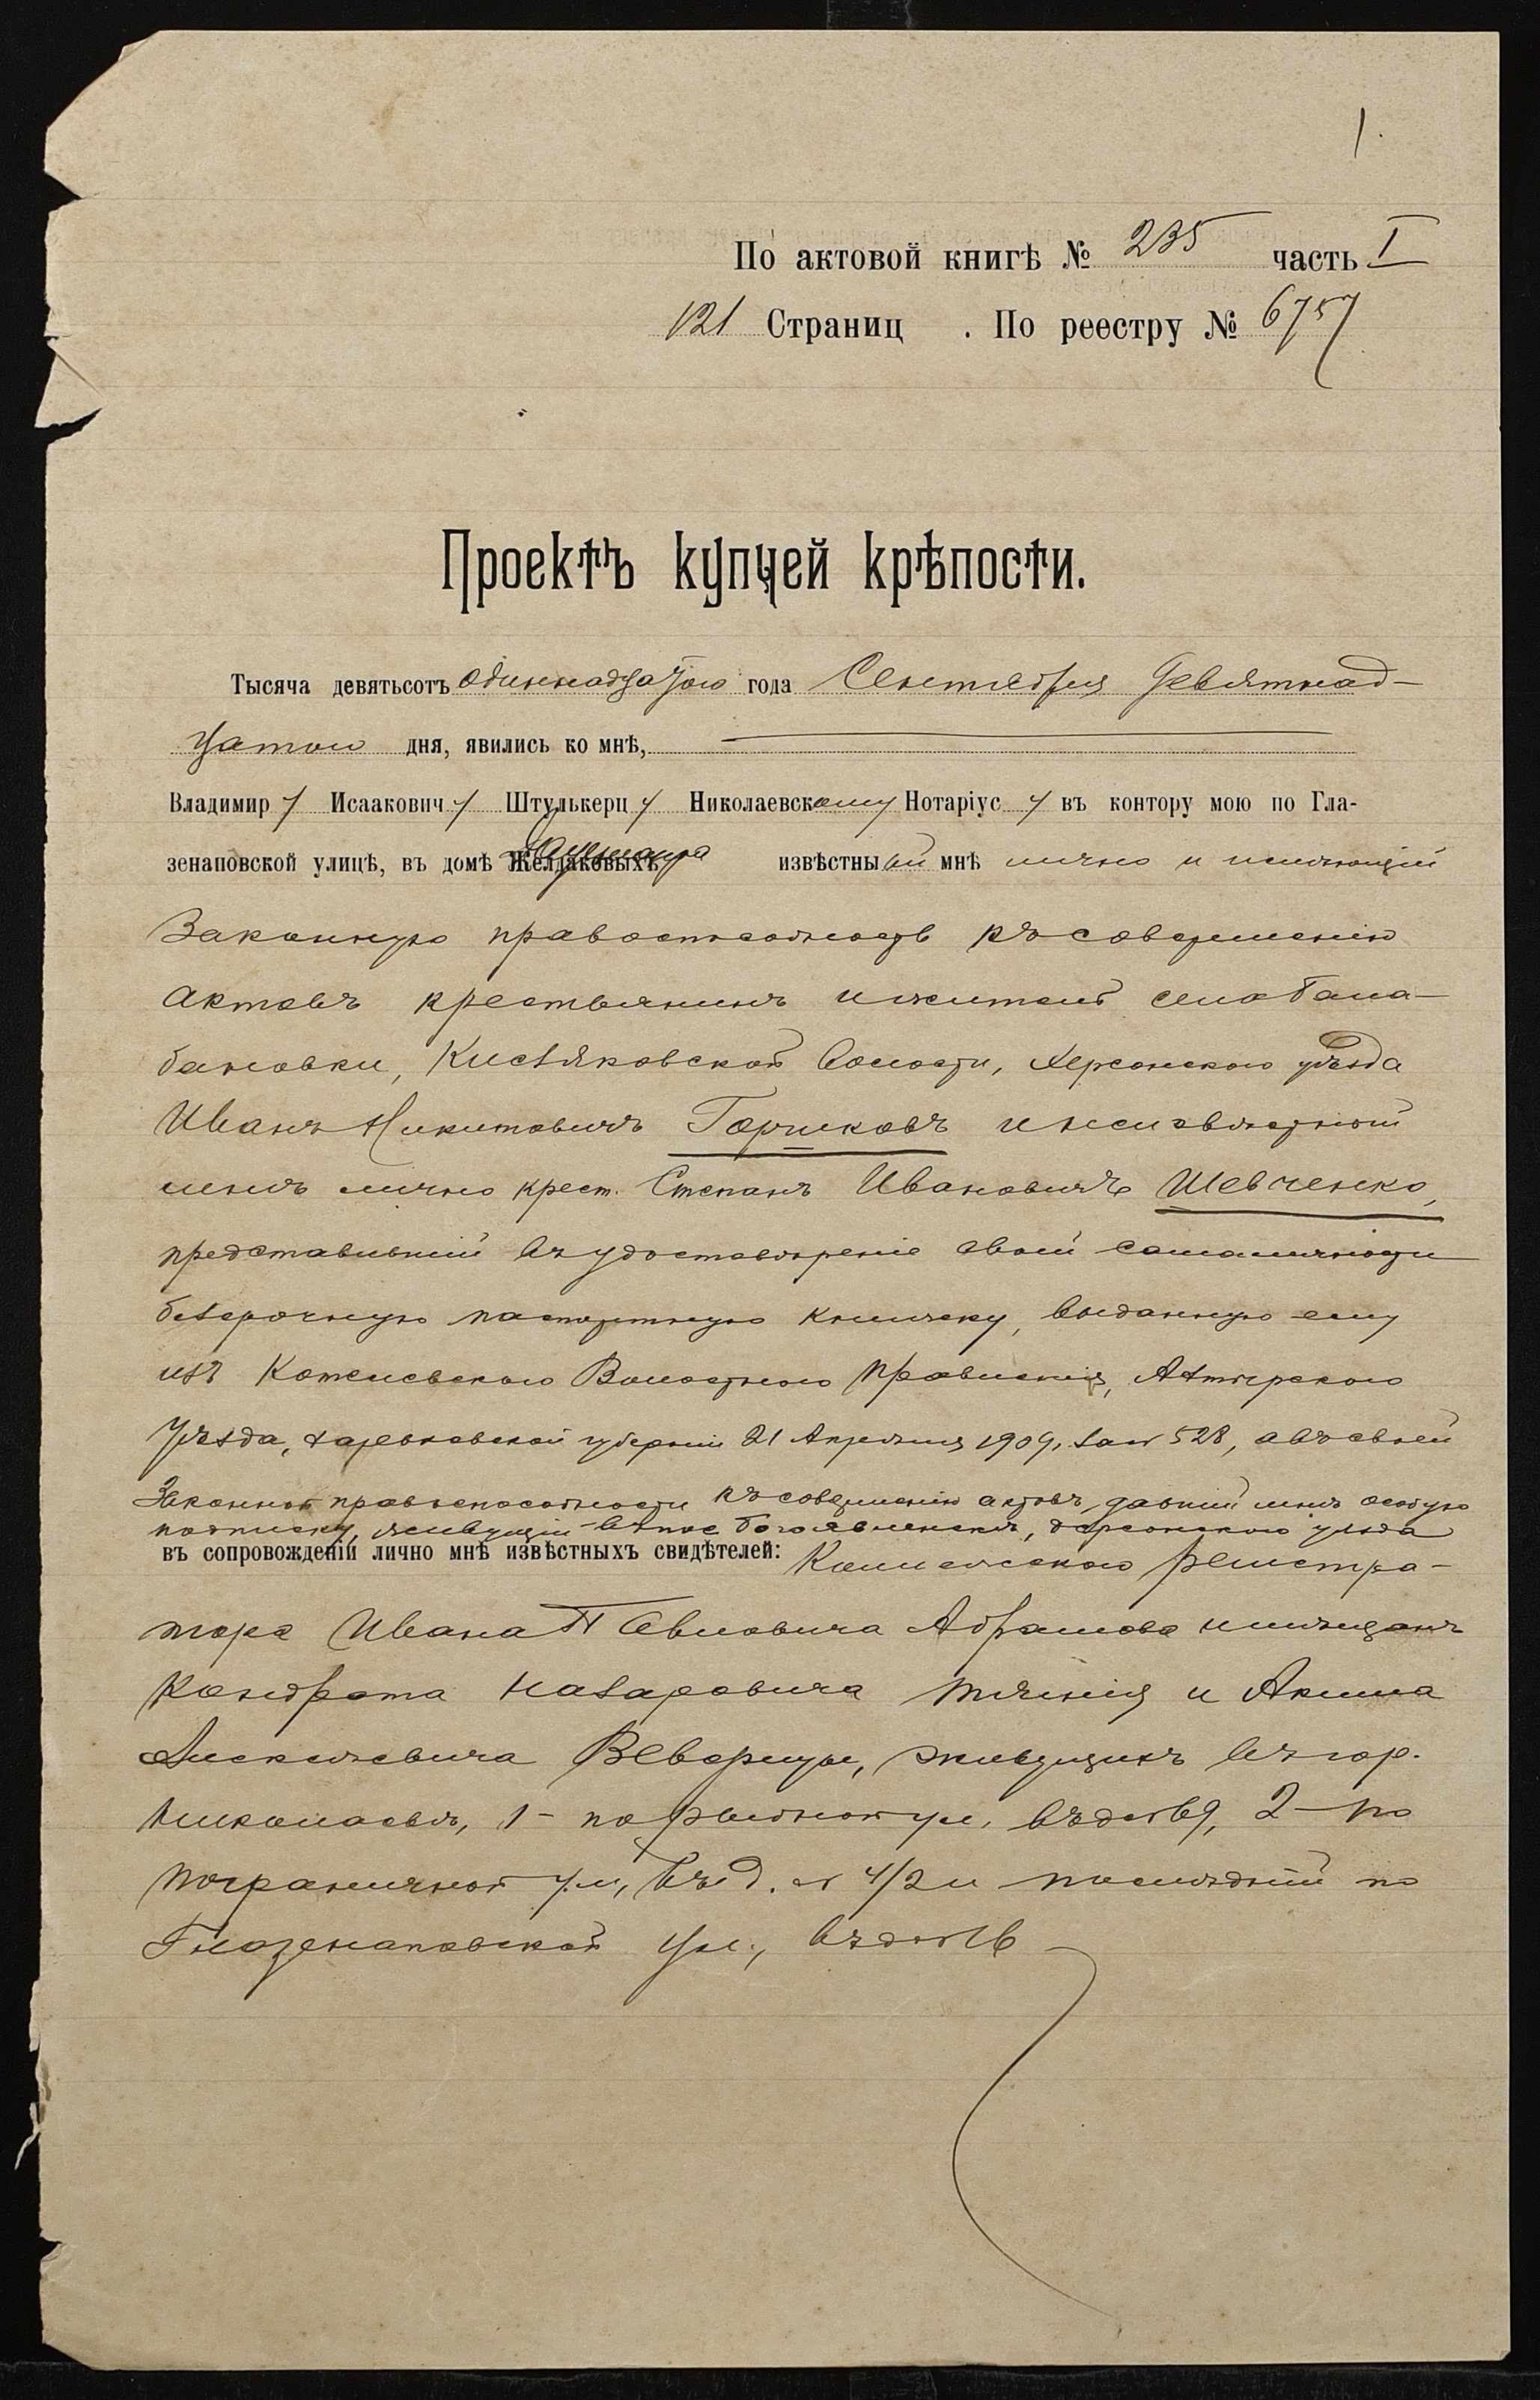 1.
По актовой книгѣ № 235 часть I
121 Страниц . По реестру № 6757
Проектъ купчей крѣпости.
Тысяча девятьсотъ одиннадцатого года Сентября девятнад-
цатого дня, явились ко мнѣ,
Владимир у Исаакович у Штулькерц у Николаевскому Нотаріус у въ контору мою по Гла-
зенаповской улицѣ, въ домѣ Желдаковыхъ извѣстный мнѣ лично и имѣющій
законную правоспособность къ совершенію
актовъ крестьянинъ и житель села Бала-
бановки, Кисляковской волости, Херсонскаго уѣзда
Иванъ Никитовичъ Горшковъ и неизвѣстный
мнѣ лично крест. Степанъ Ивановичъ Шевченко,
представившій въ удостовѣреніе своей самоличности
безсрочную паспортную книжку, выданную ему
изъ Котелевского Волостного Правленія, Ахтырского
Уѣзда, Харьковской губерніи 21 Апрѣля 1909, за № 528, а въ своей
законной правоспособности къ совершенію актовъ, давшій мнѣ особую
подписку, живущій въ пос. Богоявленскѣ, Херсонского уѣзда
въ сопровожденіи лично мнѣ извѣстныхъ свидѣтелей: Коллежского регистра-
тора Ивана Павловича Абрамова и мѣщанъ
Кондрата Назаровича и Акима
Алексѣевича Веверицы, живущихъ въ гор.
Николаевѣ, 1- по Рыбной ул., въ д. № 2- по
Пограничной ул., въ д. № 4/2 и послѣдній по
Глазенаповской ул., въ д. № 16